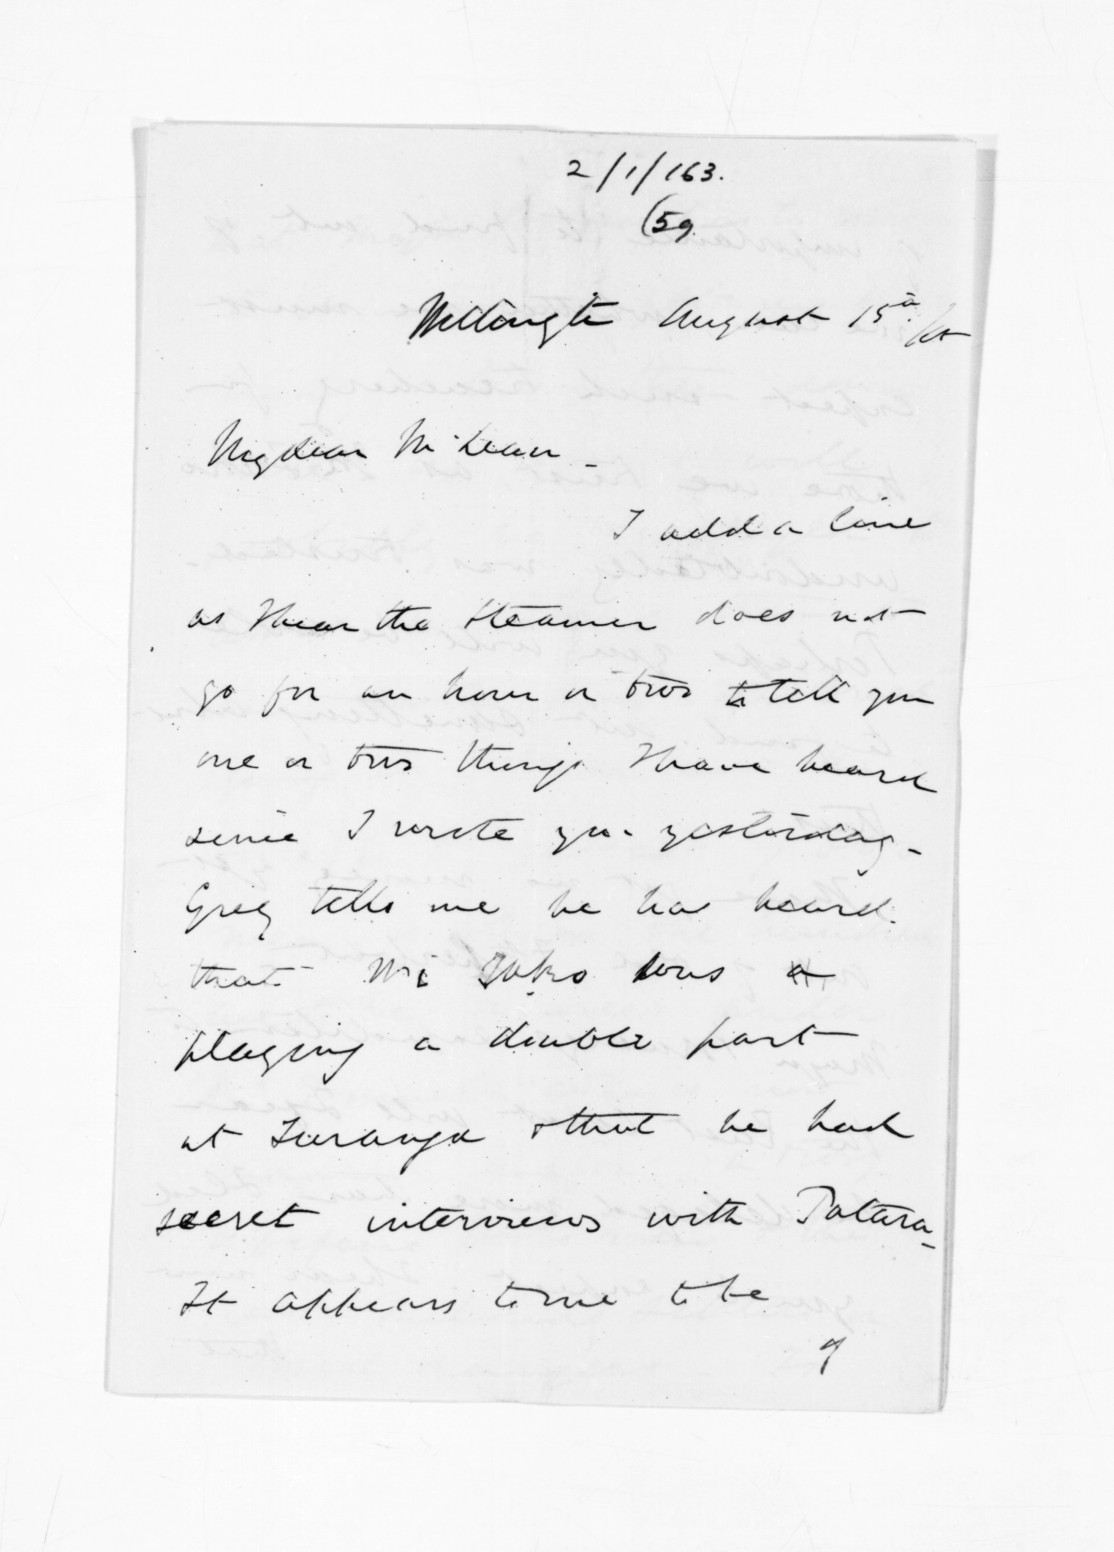 2/1/163.
(59.
Wellington August 15th /65
My dear McLean_
I add a line
as I hear the steamer does not
go for an hour or two to tell you
one or two things I have heard
since I wrote you yesterday_
Greg tells me he has heard
that Wi Tako was
playing a double part
at Turanga & that he had
secret interviews with Patara_
It appears to me to be
of